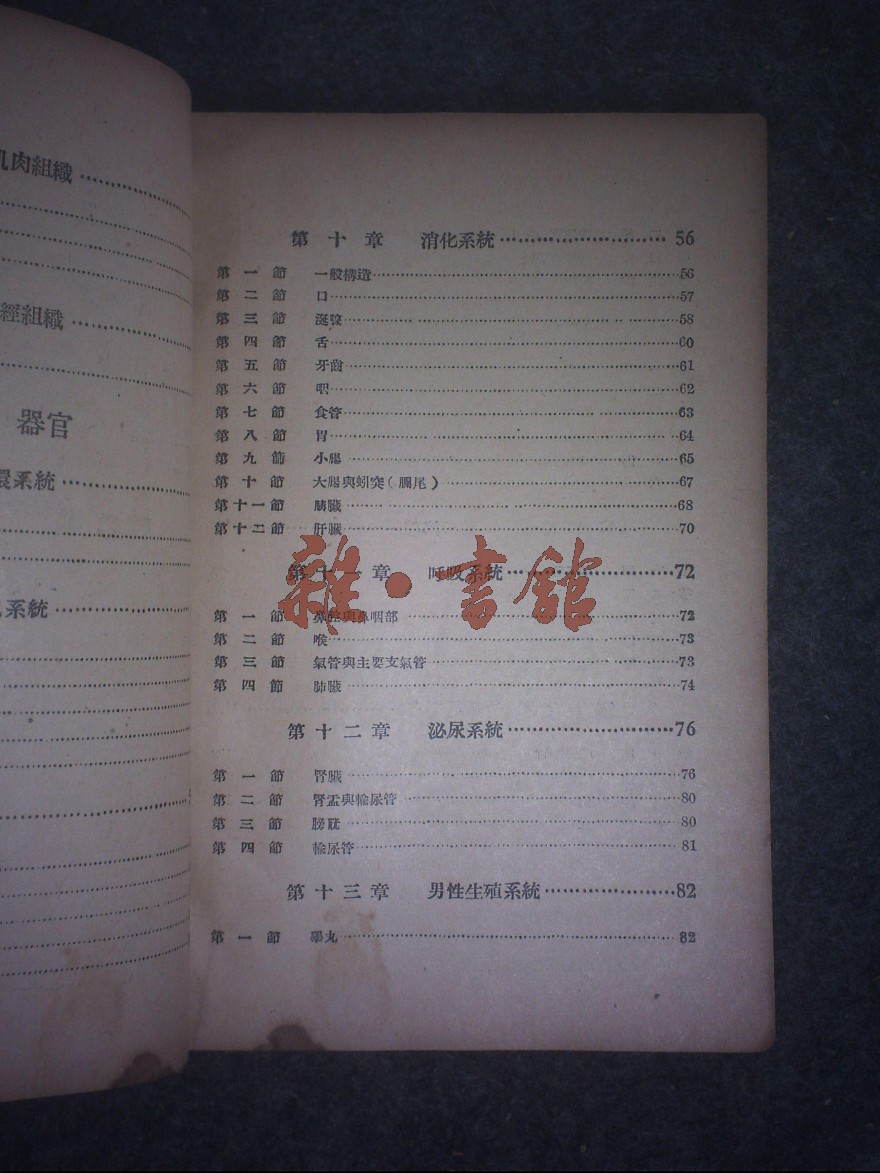 肌肉組織
經組織
器官
環系統
系統
第十章 消化系統 56
第一節 一般構造 56
第二節 口 57
第三節 涎腺 58
第四節 舌 60
第五節 牙齒 61
第六節 咽 62
第七節 食管 63
第八節 胃 64
第九節 小腸 65
第十節 大腸與蚓突(闌尾) 67
第十一節 胰臟 68
第十二節 肝臟 70
第十一章 呼吸系統 72
雜·書館
第一節 鼻腔與鼻咽部 72
第二節 喉 73
第三節 氣管與主要支氣管 73
第四節 肺臟 74
第十二章 泌尿系統 76
第一節 腎臟 76
第二節 腎盂與輸尿管 80
第三節 膀胱 80
第四節 輸尿管 81
第十三章 男性生殖系統 82
第一節 睾丸 82